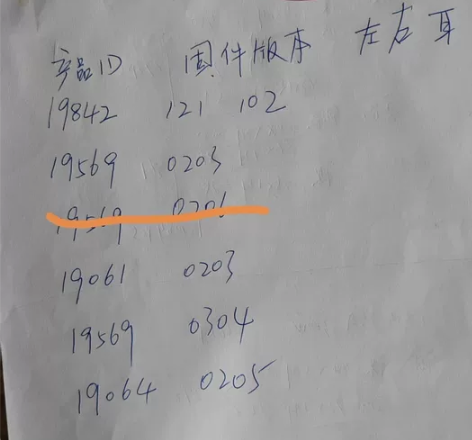 产品ID 固件版本 左右耳
19842 121 102
19569 0203
19569 0206
19061 0203
19569 0304
19064 0205